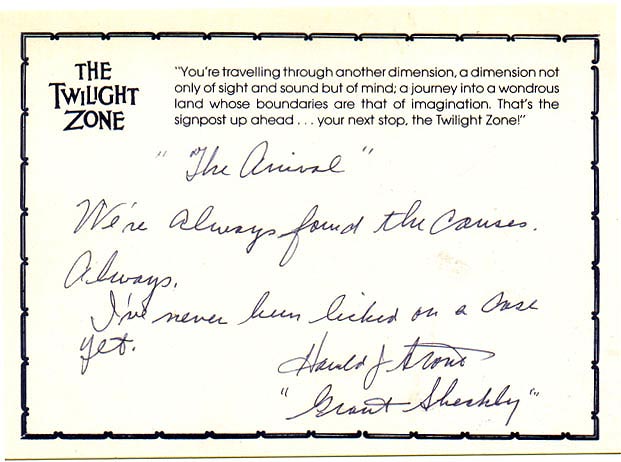 THE
TWILIGHT
ZONE
"You're travelling through another dimension, a dimension not
only of sight and sound but of mind; a journey into a wondrous
land whose boundaries are that of imagination. That's the
signpost up ahead . . . your next stop, the Twilight Zone!"
"The Arrival"
We're always found the causes.
Always.
I've never been licked on a case
yet.
Harold J Stone
"Grant Sheckly"